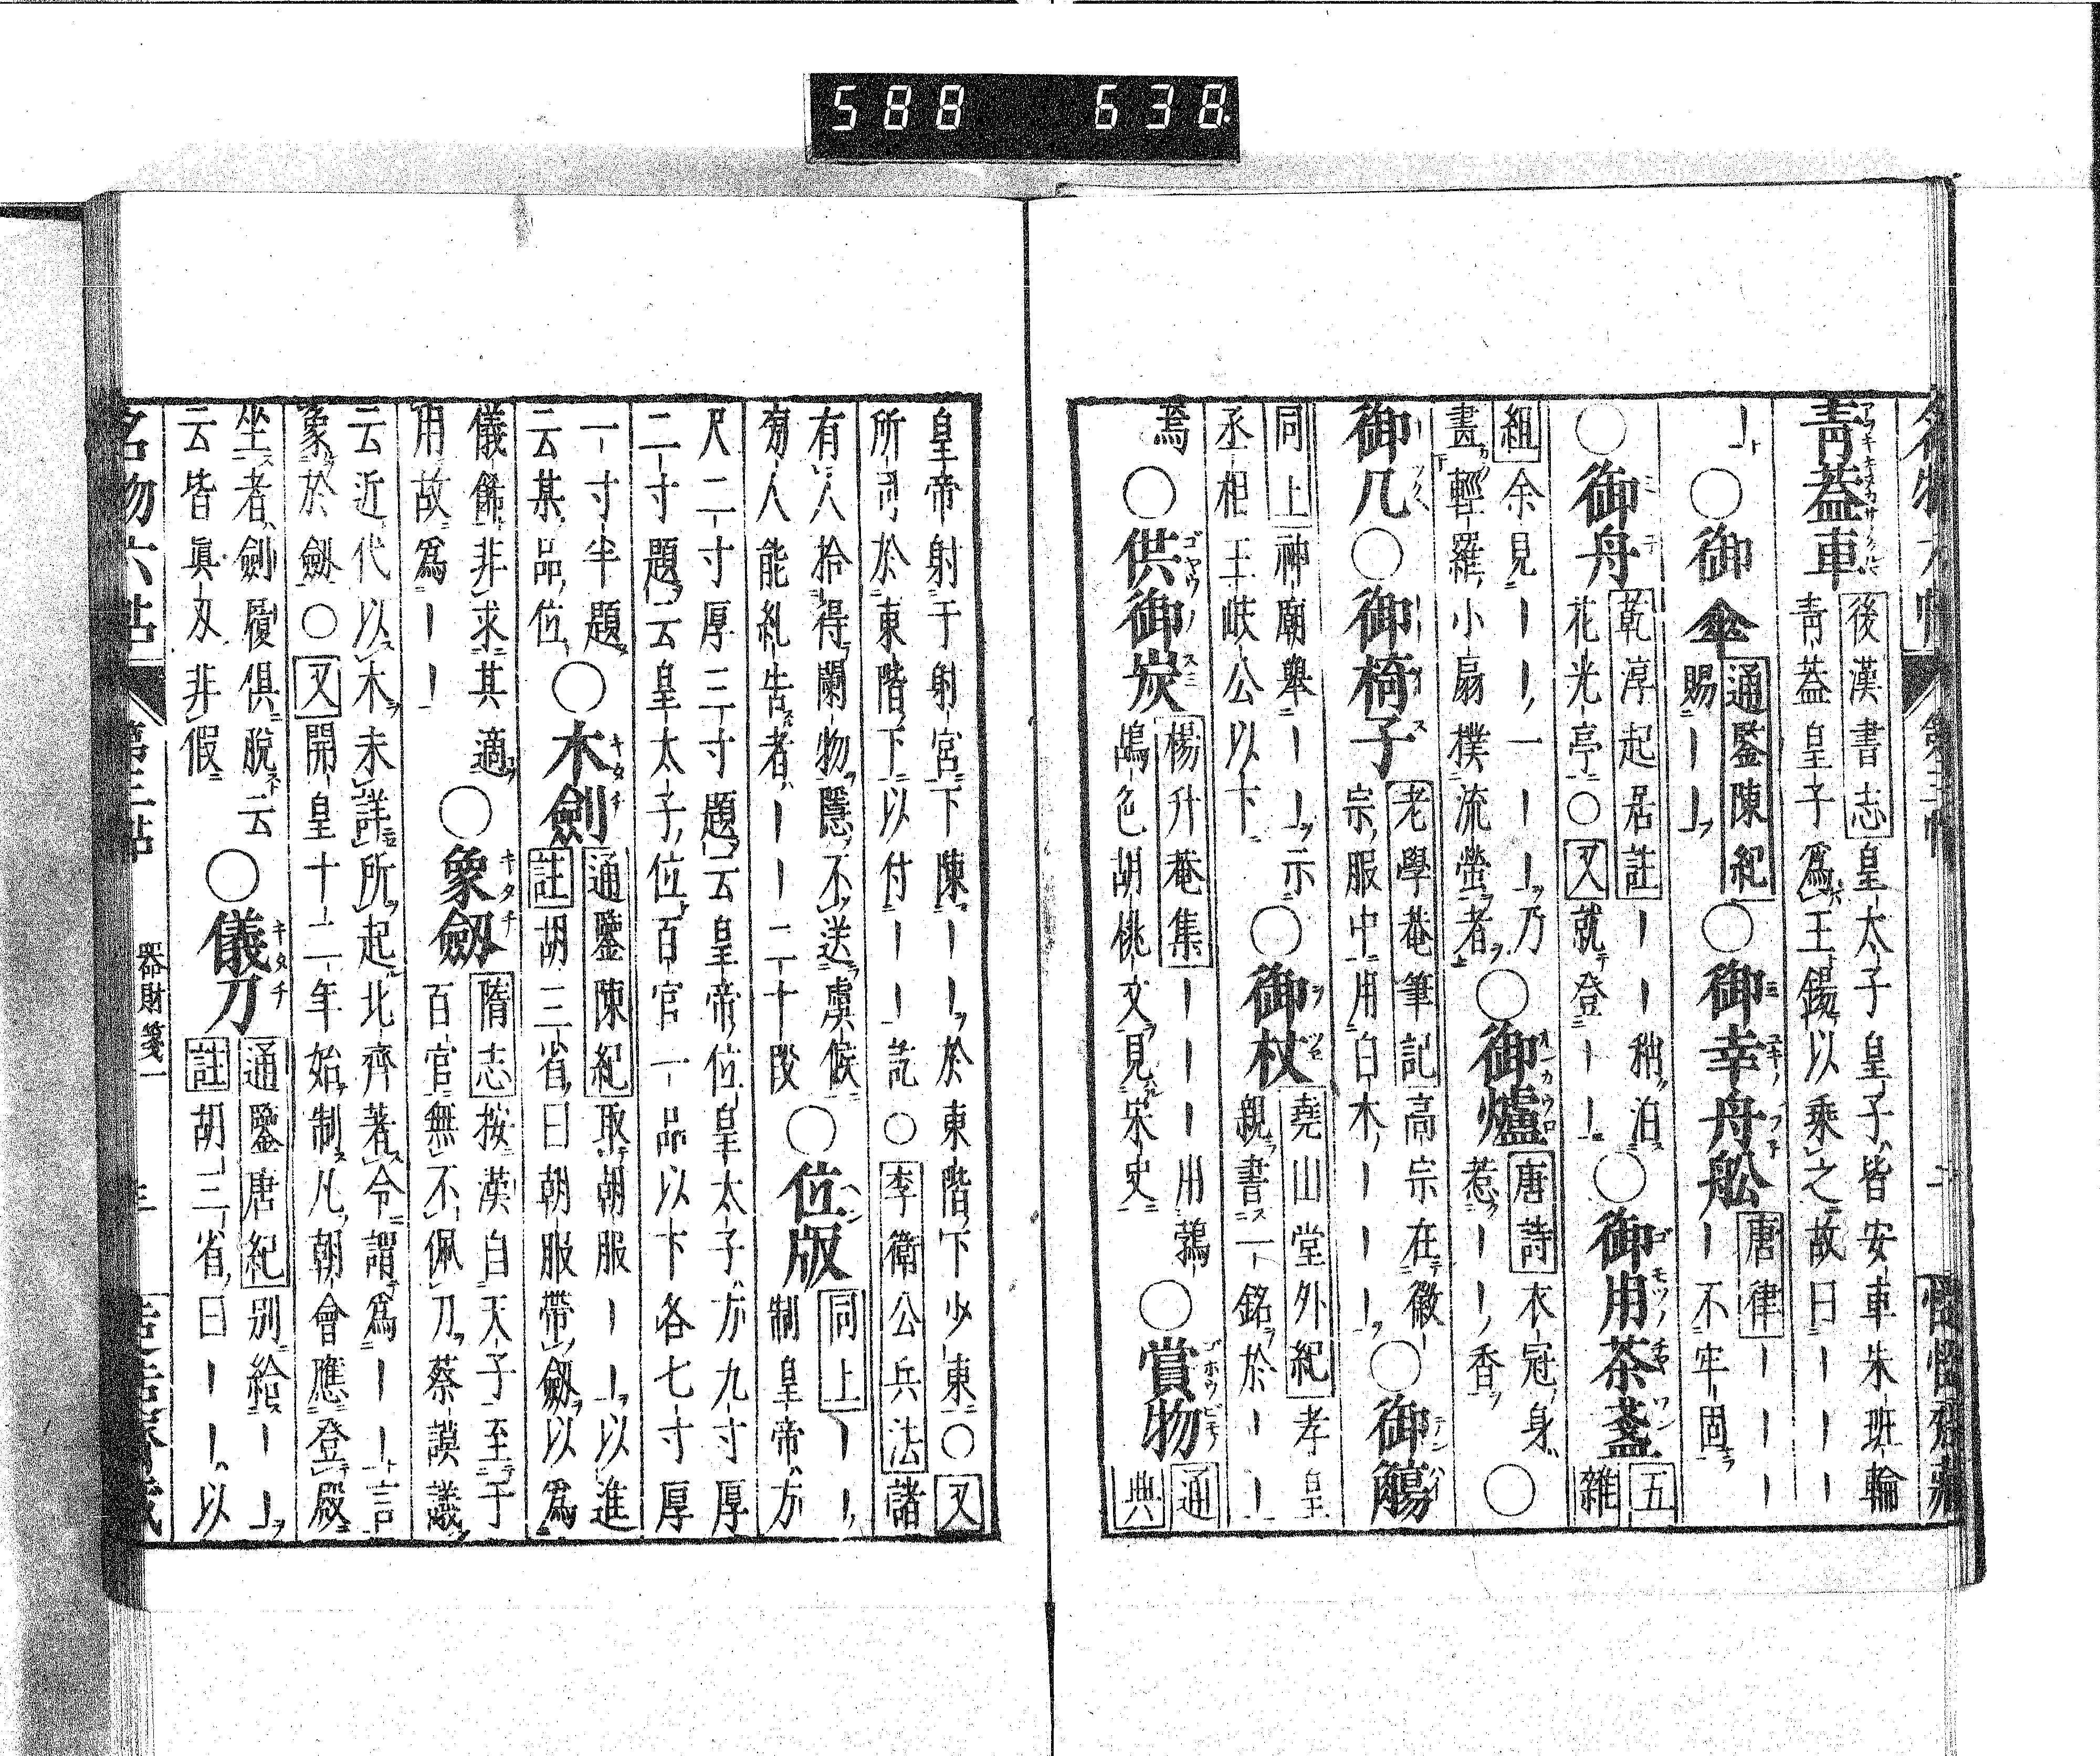 588 638
青蓋車 後漢書志皇太子皇子皆安車朱班輪
青蓋皇子爲王錫以乘之故曰｜｜
｜○御傘 通鑒陳紀賜｜｜○御幸舟舩 唐律｜｜｜｜不牢固
○御舟 乾淳起居註｜｜稍泊花光亭○又就登｜｜○御用茶盞 五雜
組余見｜｜｜一｜｜乃畫輕羅小扇撲流螢者○御爐 唐詩衣冠身惹｜｜香○
御几○御椅子 老學菴筆記高宗在徽宗服中用白木｜｜｜○御觴
同上神廟舉｜｜示丞相王岐公以下○御杖 堯山堂外紀孝皇親書一銘於｜｜
焉○供御炭 楊升菴集｜｜｜用鶉鴣色胡桃文見宋史○賞物 通典
皇帝射于射宮下陳｜｜於東階下少東○又
所司於東階下以付｜｜訖○李衛公兵法諸
有人拾得闌物隱不送虞候
有人能糺告者｜｜二十段○位版 同上｜｜制皇帝方
尺二寸厚三寸題云皇帝位皇太子方九寸厚
二寸題云皇太子位百官一品以下各七寸厚
一寸半題云某品位○木劍 通鑒陳紀取胡服｜｜以進註胡三省曰朝服帶劔以爲
儀飾非求其適用故爲｜｜○象劔 隋志按漢自天子至于百官無不佩刀蔡謨議
云近代以木未詳所起北齊著令謂爲｜｜言
象於劔○又開皇十二年始制凡朝會應登殿
坐者劍履俱脫云云皆眞刄非假○儀刀 通鑒唐紀別給｜｜註胡三省曰｜｜以
名物六帖 第三帖 器財箋一